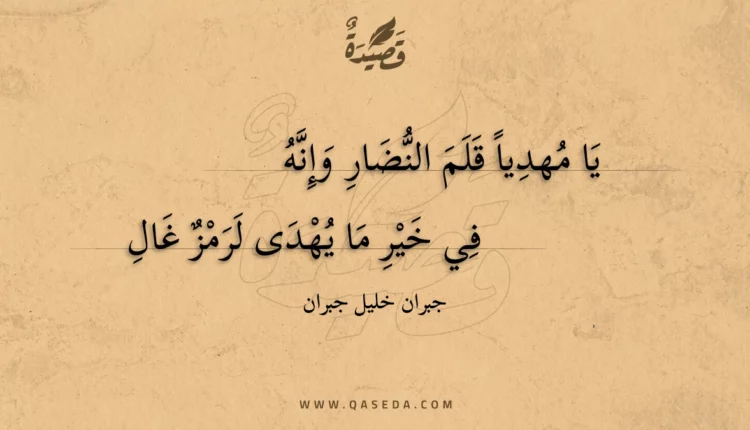 قَصِيْدَةٌ
يَا مُهدِياً قَلَمَ النُّضَارِ وَإِنَّهُ
فِي خَيْرِ مَا يُهْدَى لَرَمْزٌ غَالِ
جبران خليل جبران
WWW.QASEDA.COM